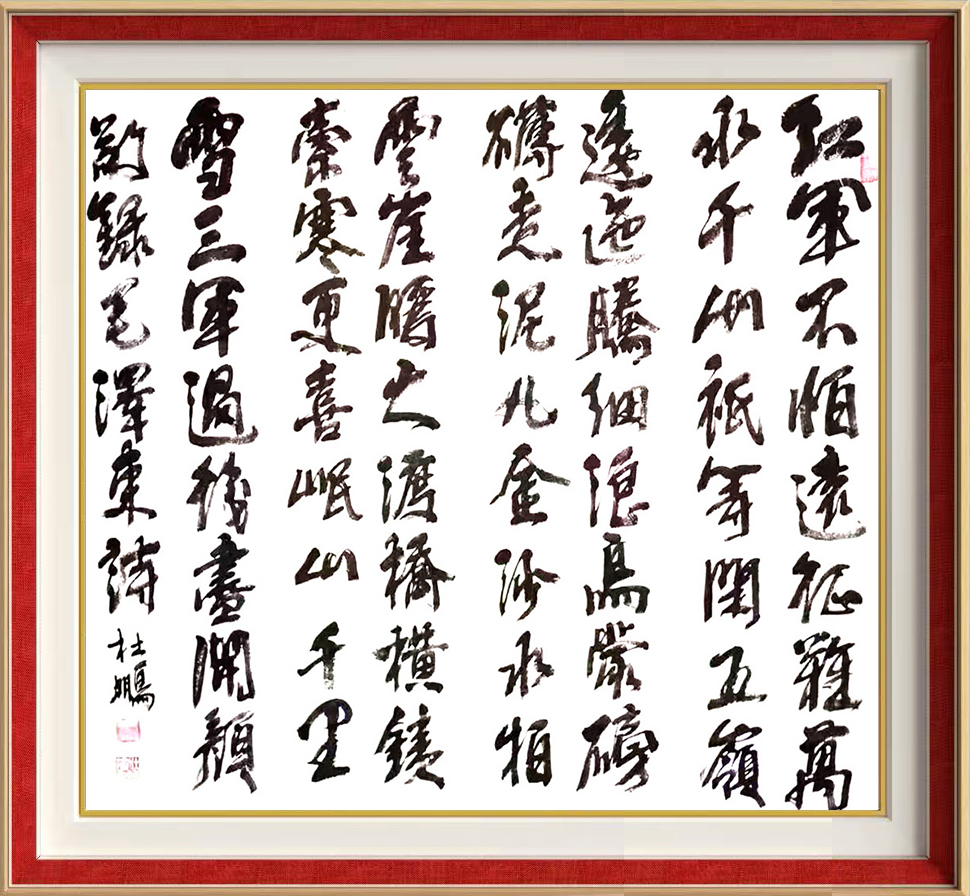 紅軍不怕遠征難萬
水千山祇等閑五嶺
逶迤騰細浪烏蒙磅
礴走泥丸金沙水拍
雲崖暖大渡橋橫鐵
索寒更喜岷山千里
雪三軍過後盡開顏
敬錄毛澤東詩 杜鵬